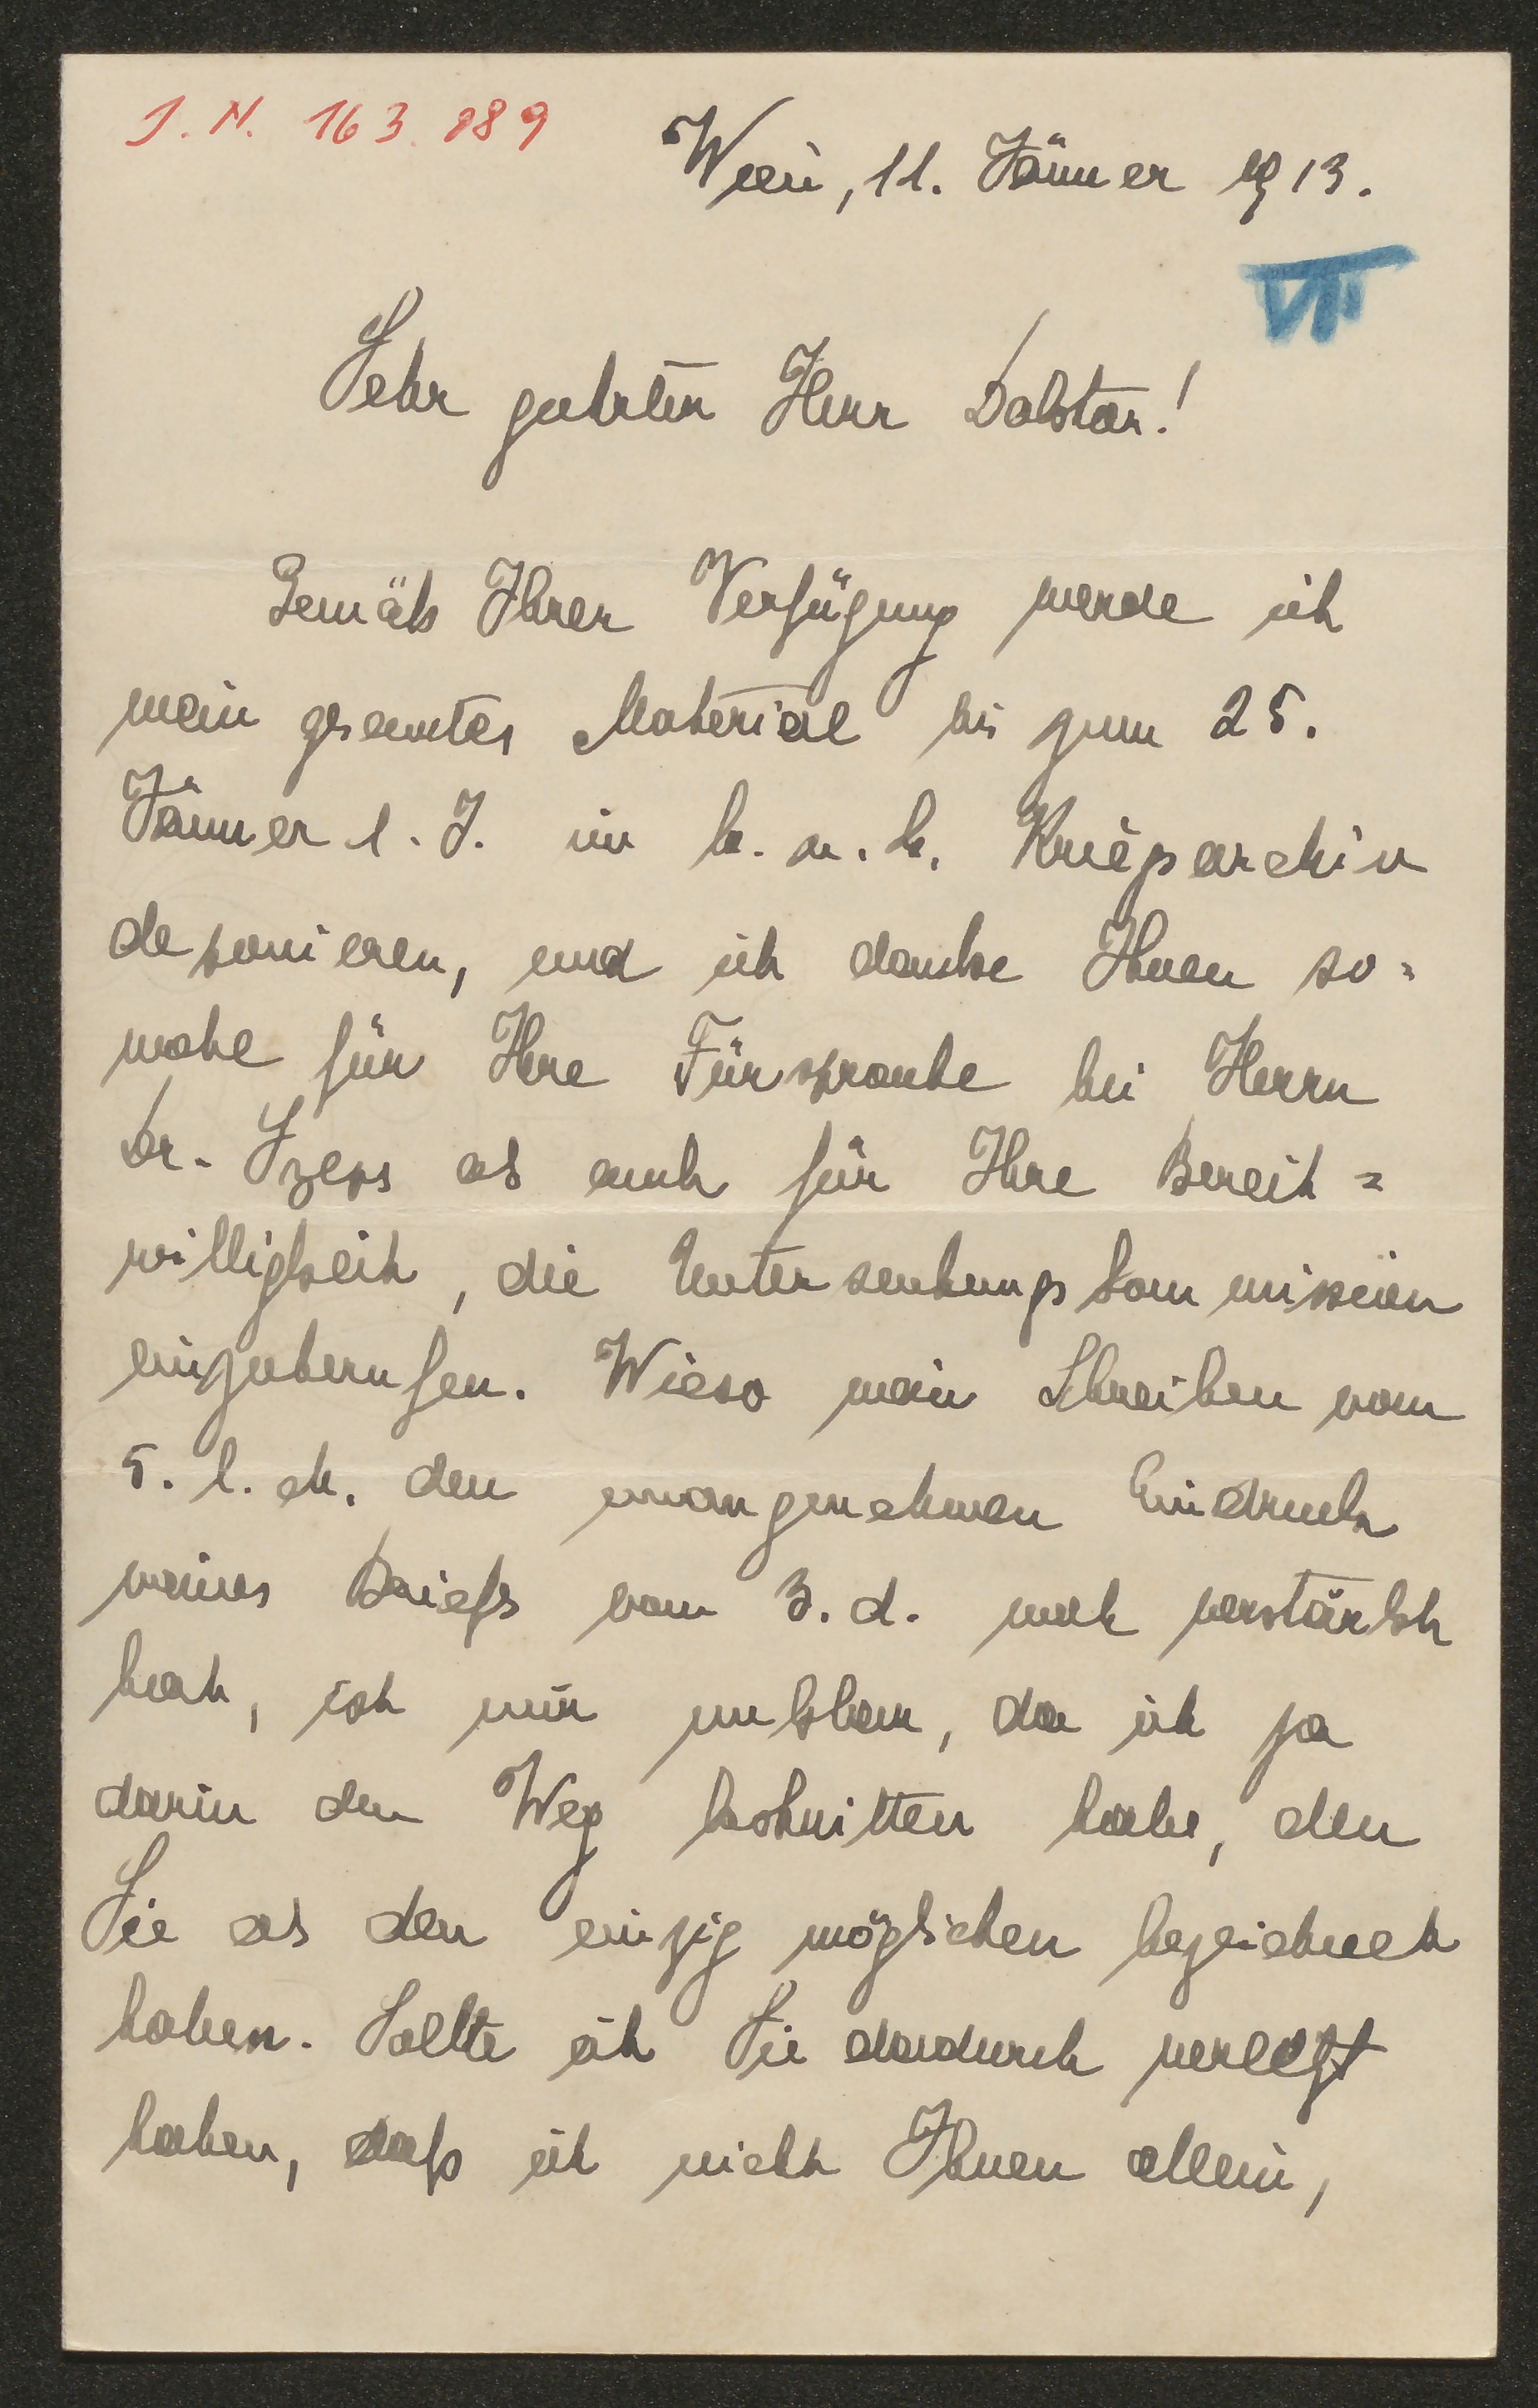 J. N. 163.889
Wien, 11. Jänner 1913.
VII
Sehr geehrter Herr Doktor!
Gemäß Ihrer Verfügung werde ich
mein gesamtes Material bis zum 25.
Jänner l. J. im k. u. k. Kriegsarchiv
deponieren, und ich danke Ihnen so=
wohl für Ihre Fürsprache bei Herrn
Dr. Szeps als auch für Ihre Bereit=
willigkeit, die Untersuchungskommission
einzuberufen. Wieso mein Schreiben vom
5. l. M. den unangenehmen Eindruck
meines Briefs vom 3. d. noch verstärkt
hat, ist mir unklar, da ich ja
darin den Weg beschritten habe, den
Sie als den einzig möglichen bezeichnet
haben. Sollte ich Sie dadurch verletzt
haben, daß ich nicht Ihnen allein,